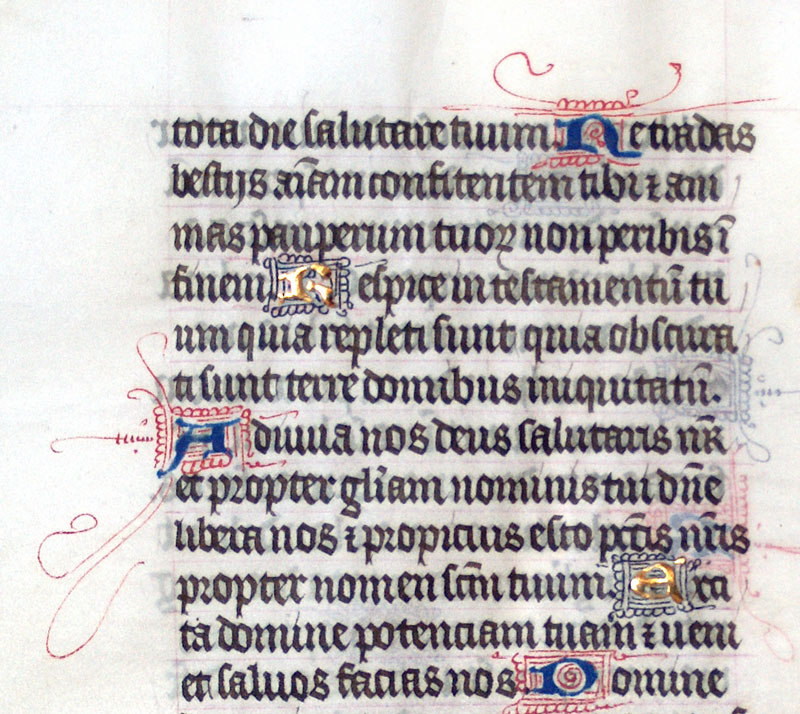 tota die salutare tuum. Ne tradas
bestijs aīam confitentem tibi ⁊ ani
mas pauperum tuoꝝ non peribis ī
finem Respice in testamentū tu
um quia repleti sunt quia obscura
ti sunt terre domibus iniquitatū.
Adiuua nos deus salutaris nr̄
et propter gl̄iam nominis tui dn̄e
libera nos ⁊ propicius esto pc̄tis nr̄is
propter nomen sc̄m tuum. Exci
ta domine potenciam tuam ⁊ ueni
et saluos facias nos. Domine